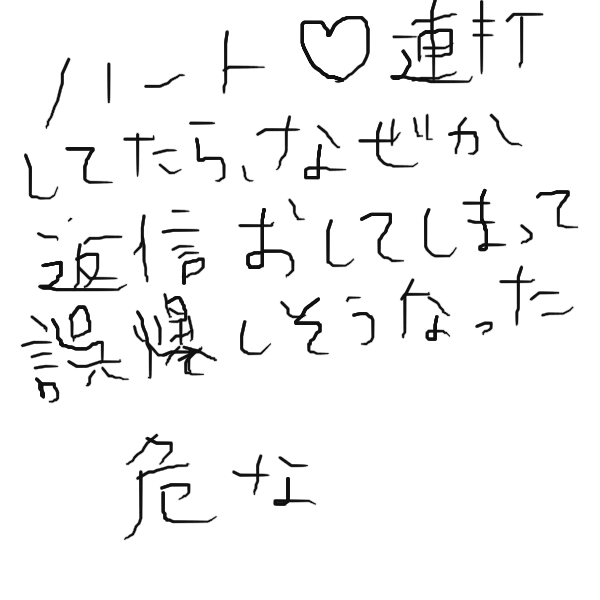 ハート♡連打
してたら、なぜか
返信おしてしまって
誤爆しそうなった
危な